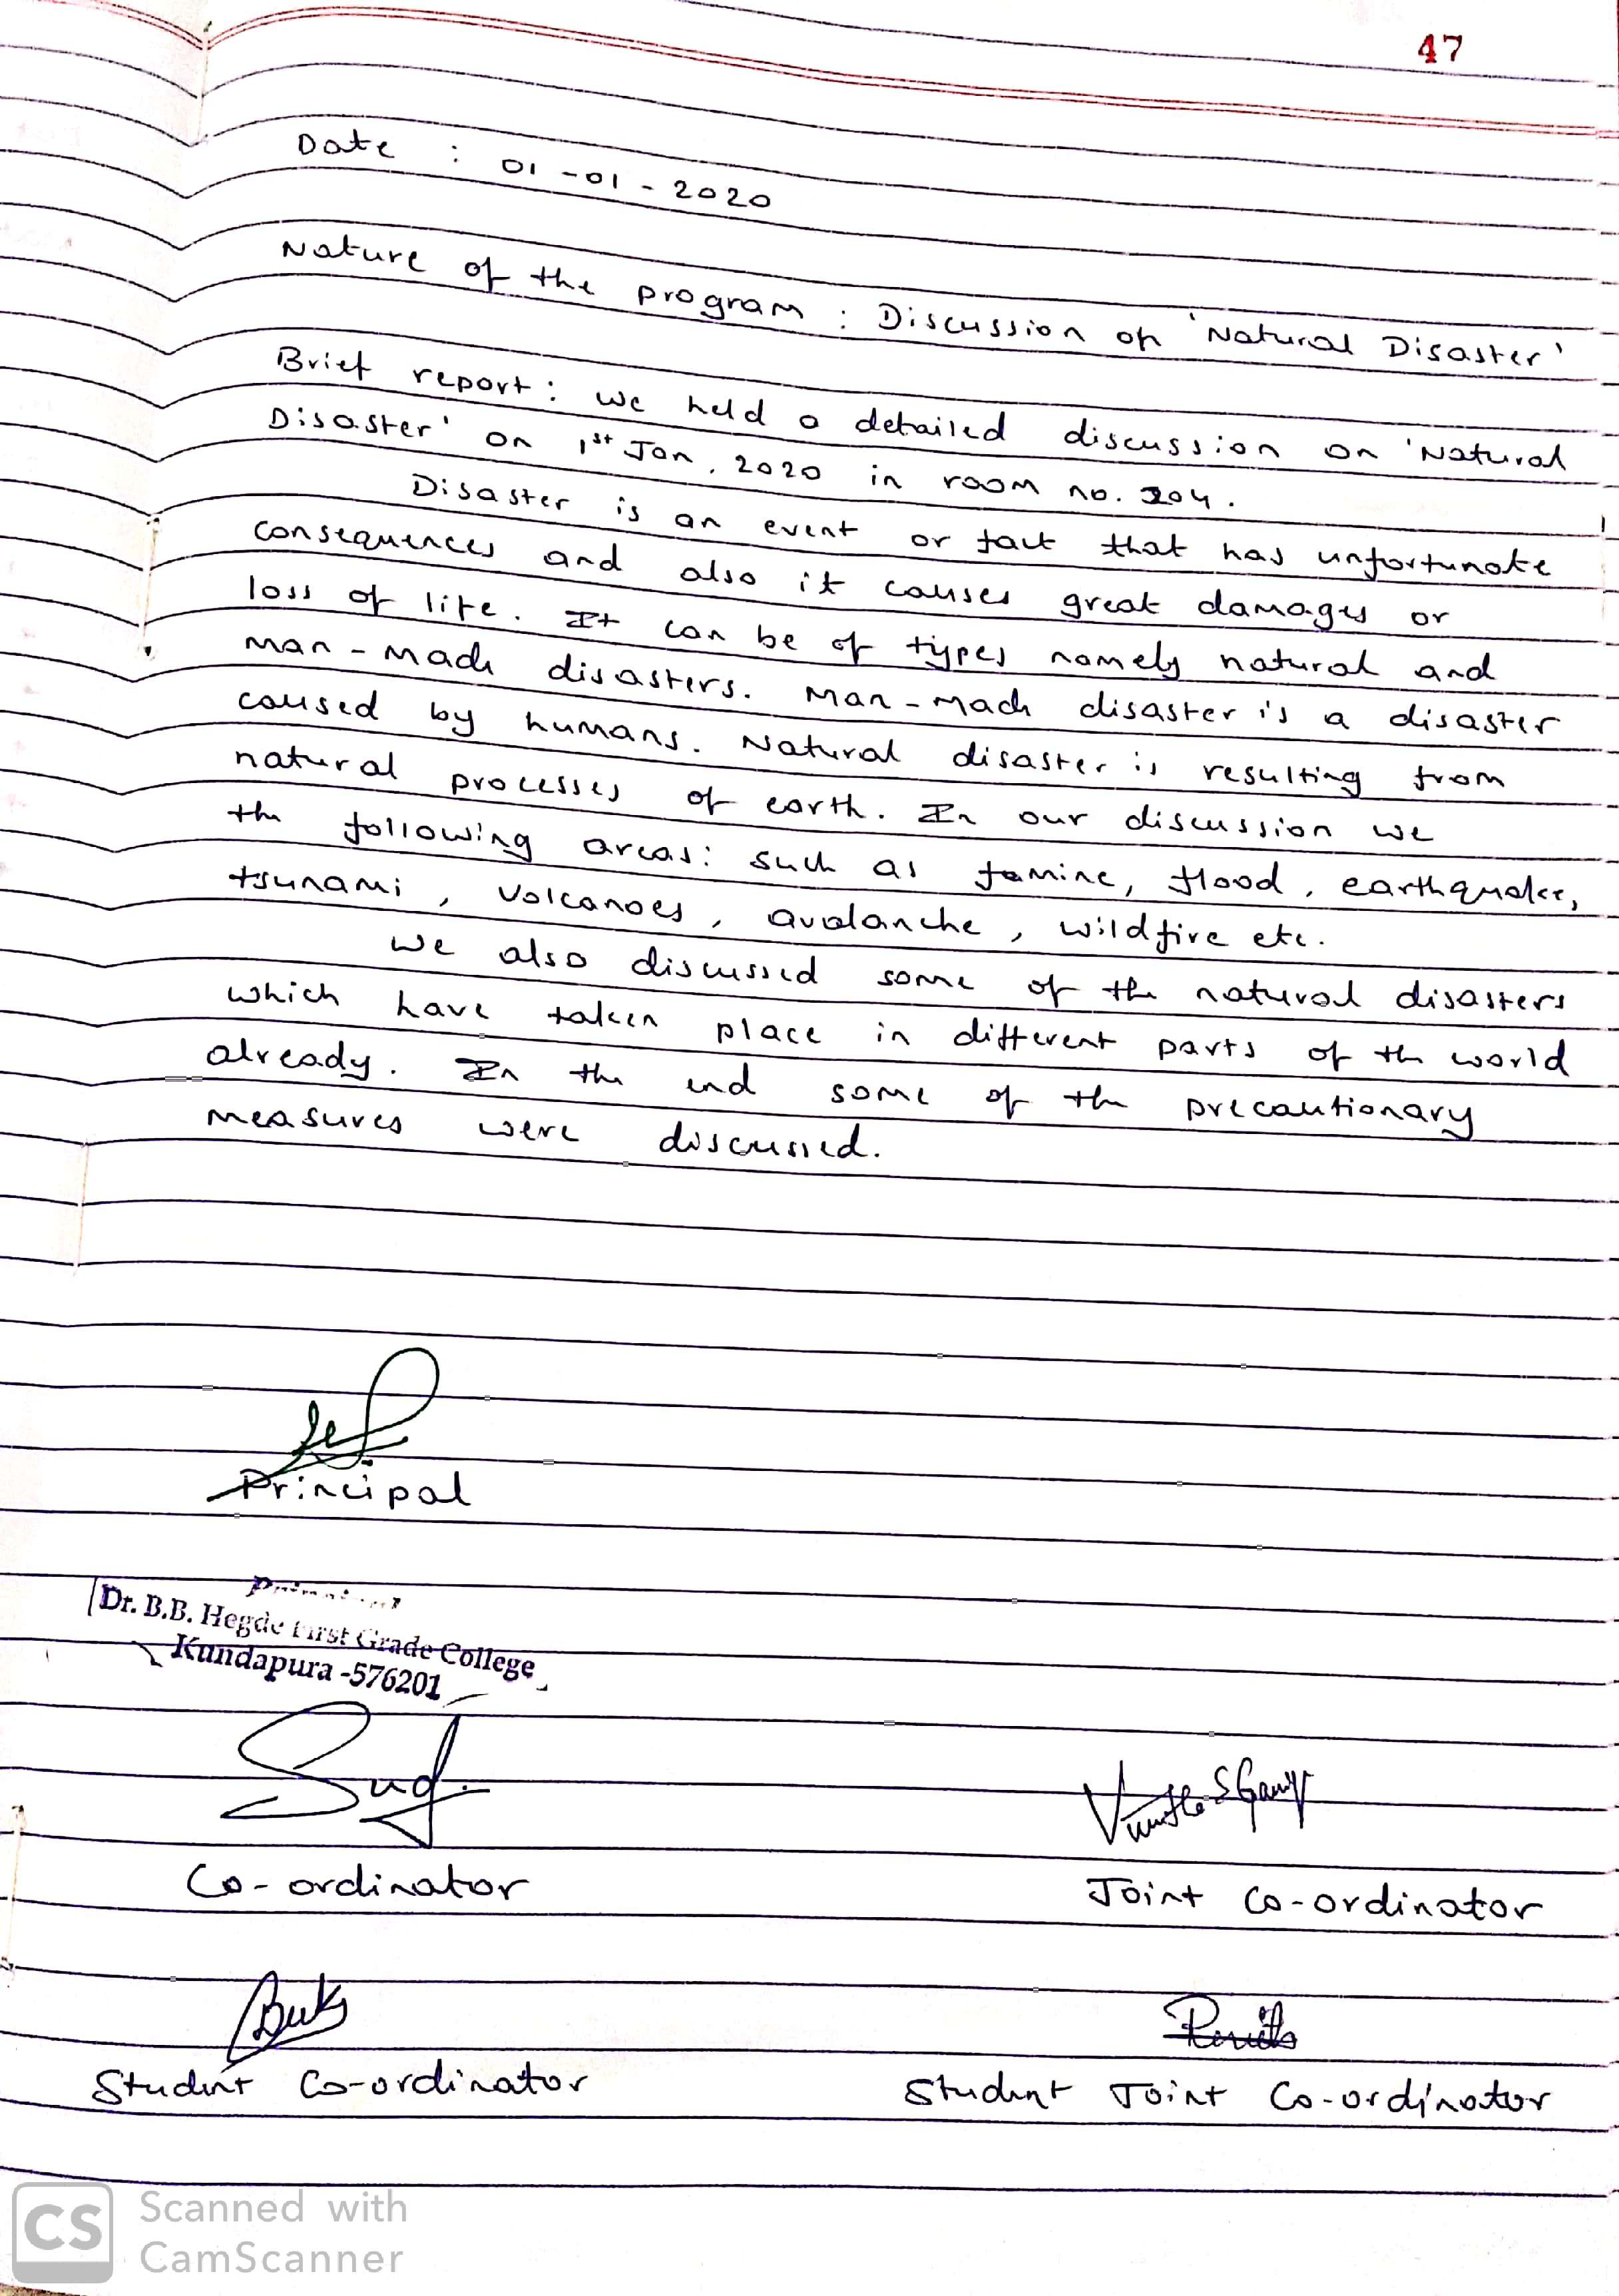 47
Date : 01-01-2020
Nature of the program : Discussion on 'Natural Disaster'
Brief report: we held a detailed discussion on 'Natural
Disaster' on 1st Jan, 2020 in room no. 204.
Disaster is an event or fact that has unfortunate
consequences and also it causes great damages or
loss of life. It can be of types namely natural and
man-made disasters. Man-made disaster is a disaster
caused by humans. Natural disaster is resulting from
natural processes of earth. In our discussion we
the following areas: such as famine, flood, earthquake,
tsunami, volcanoes, avalanche, wildfire etc.
we also discussed some of the natural disasters
which have taken place in different parts of the world
already. In the end some of the precautionary
measures were discussed.
Principal
Principal
Dr. B.B. Hegde First Grade College
Kundapura-576201
Co-ordinator
Joint Co-ordinator
Student Co-ordinator
Student Joint Co-ordinator
CS Scanned with
CamScanner